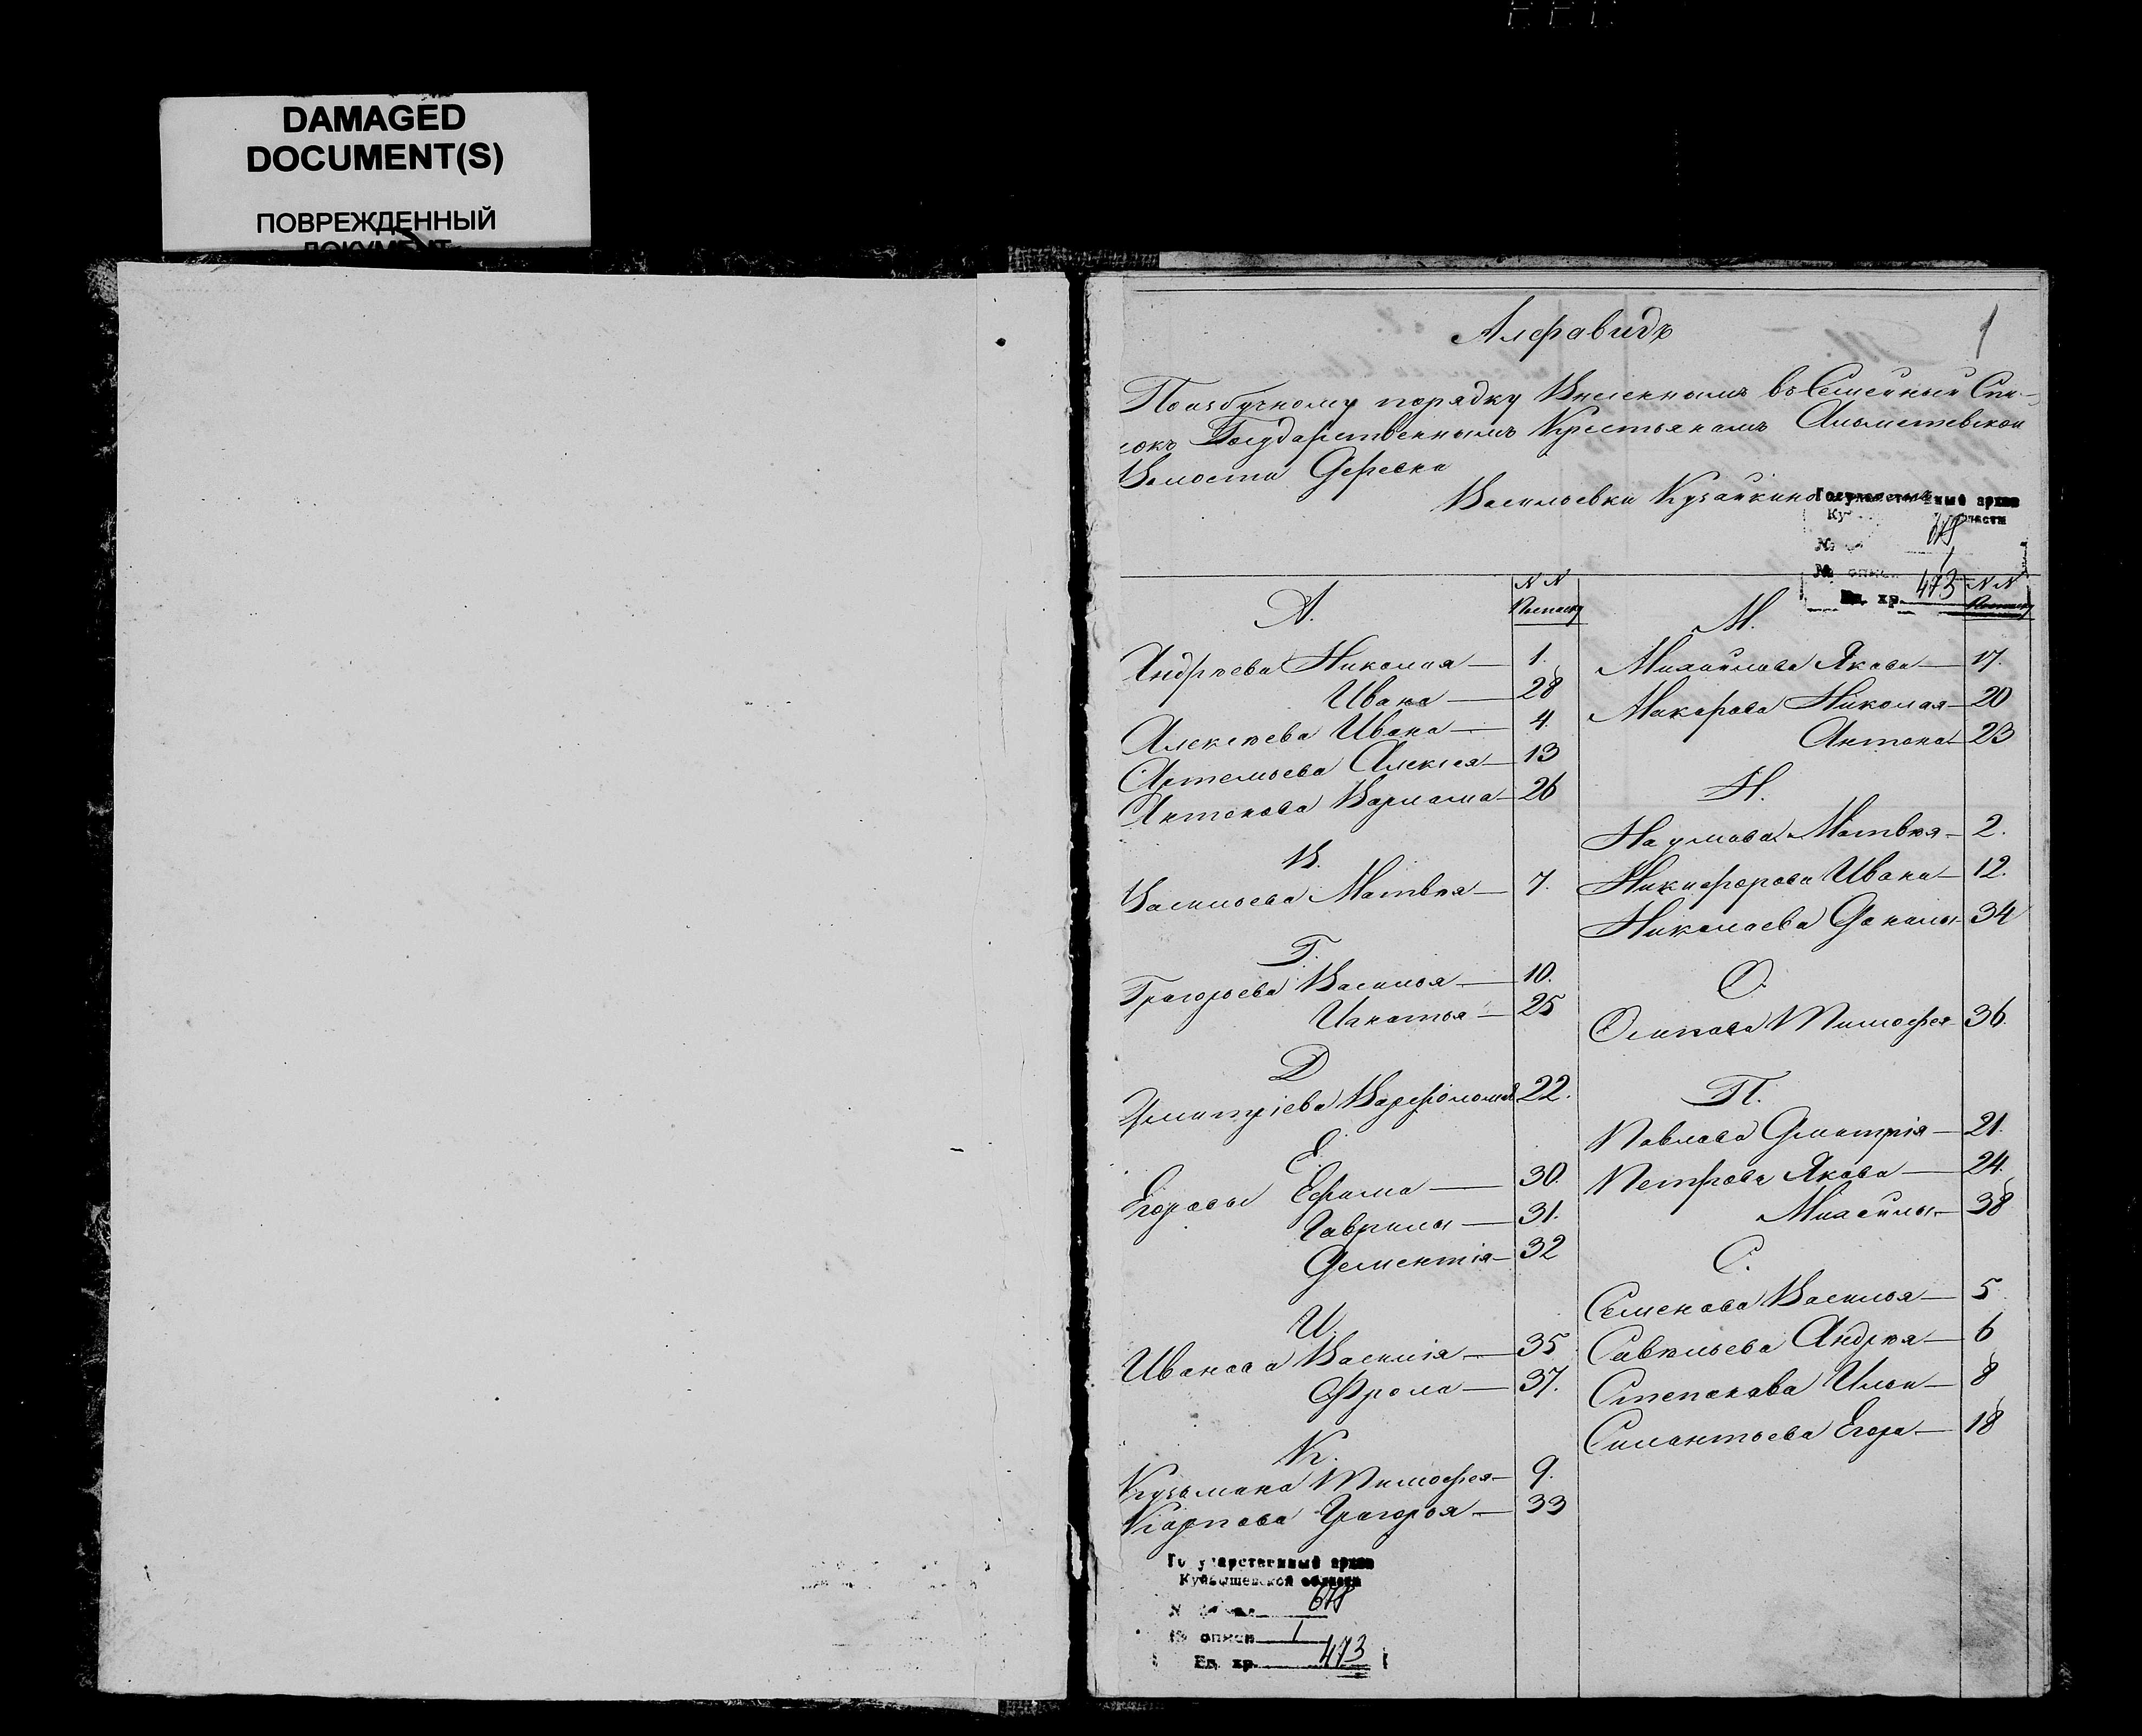 DAMAGED
DOCUMENT(S)
ПОВРЕЖДЕННЫЙ
ДОКУМЕНТ
Алфавидъ
1
Поазбучному порядку Внесеннымъ въ Семейный Спи-
сокъ Государственнымъ Крестьянамъ
Волости Деревни
Васильевки Кузайкино
Государственный архив
Ку области
№ 678
№ описи 1
Ед. хр. 473
А.
N N
Посписку
Андрѣева Николая — 1.
Ивана — 28
Алексѣева Ивана — 4.
Артемьева Алексея — 13
Антонова Варлама — 26
В.
Васильева Матвѣя — 7.
Г.
Григорьева Василья — 10.
Игнатья — 25
Д
Дмитріева Варфоломея 22.
Е.
Егоровы Ефима — 30.
Гаврилы — 31.
Дементія — 32
И.
Иванова Василія — 35
Фрола — 37.
К.
Кузьмина Тимофея — 9.
Карпова Григорья — 33
Государственный архив
Куйбышевской области
№ фонда 678
№ описи 1
Ед. хр. 473
М.
N N
Посписку
Михайлова Якова — 17.
Макарова Николая — 20
Антона — 23
Н.
Наумова Матвѣя — 2.
Никифорова Ивана — 12.
Николаева Данилы — 34
О.
Осипова Тимофея 36.
П.
Павлова Дмитрія — 21.
Петрова Якова — 24.
Михайлы — 38
С.
Семенова Василья — 5.
Савельева Андрѣя — 6
Степанова Ильи — 8
Силантьева Егора — 18